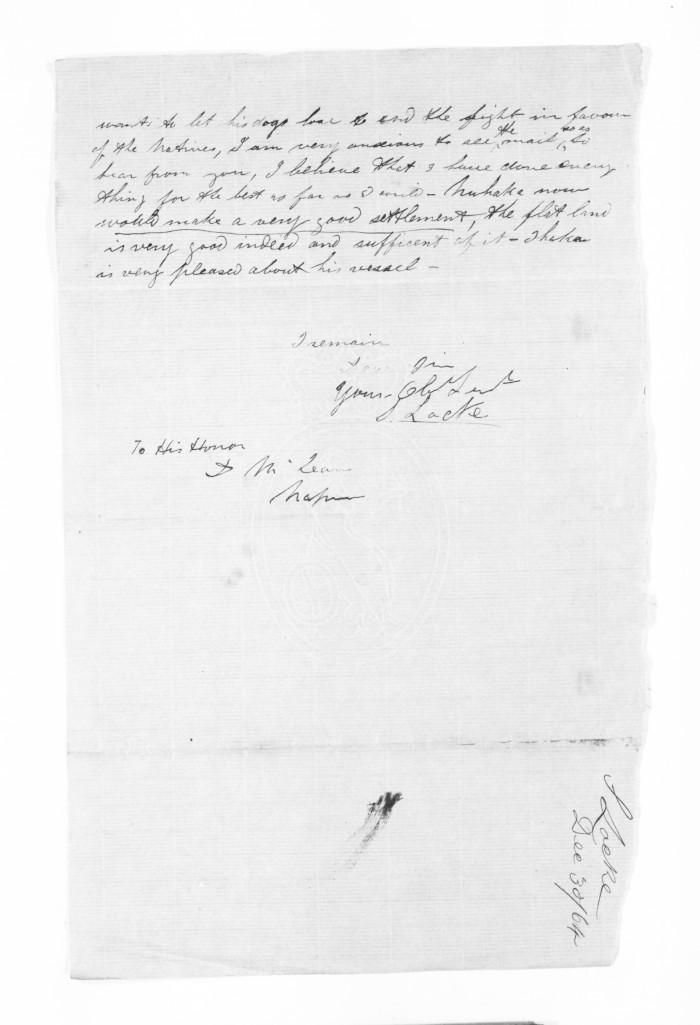 wants to let his dogs loar to end the fight in favour
of the Natives, I am very anxious to see the mail so as to
hear from you, I believe that I have done every
thing for the best as far as I could – Nuhaka now
would make a very good settlement, the flat land
is very good indeed and sufficent of it – Ihaka
is very pleased about his vessel –
I remain
Dear Sir
Yours Obt Servt
S. Locke
To His Honor
D McLean
Napier
S Locke
Dec 30/64